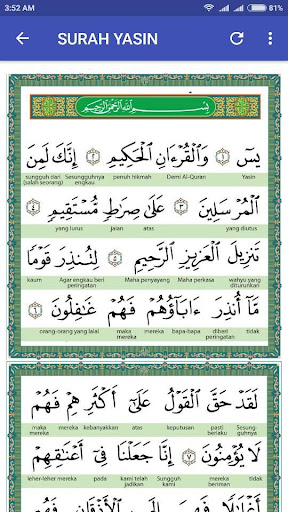 3:52 AM 81%
SURAH YASIN
بِسْمِ اللَّهِ الرَّحْمَٰنِ الرَّحِيمِ
يسٓ ١ وَٱلْقُرْءَانِ ٱلْحَكِيمِ ٢ إِنَّكَ لَمِنَ
sungguh dari (jalah seorang) Sesungguhnya engkau penuh hikmah Demi Al-Quran Yasin
ٱلْمُرْسَلِينَ ٣ عَلَىٰ صِرَٰطٍ مُّسْتَقِيمٍ ٤
yang lurus jalan atas yang diutus
تَنزِيلَ ٱلْعَزِيزِ ٱلرَّحِيمِ ٥ لِتُنذِرَ قَوْمًا
kaum Agar engkau beri peringatan Maha penyayang Maha perkasa wahyu yang diturunkan
مَّآ أُنذِرَ ءَابَآؤُهُمْ فَهُمْ غَٰفِلُونَ ٦
orang-orang yang lalai maka mereka mereka bapa-bapa diberi peringatan tidak
لَقَدْ حَقَّ ٱلْقَوْلُ عَلَىٰٓ أَكْثَرِهِمْ فَهُمْ
maka mereka mereka kebanyakkan atas keputusan pasti berlaku Sesung-guhnya
لَا يُؤْمِنُونَ ٧ إِنَّا جَعَلْنَا فِىٓ أَعْنَٰقِهِمْ
leher-leher mereka pada kami telah jadikan Sungguh kami mereka beriman tidak
أَغْلَٰلًا فَهِىَ إِلَى ٱلْأَذْقَانِ فَهُم